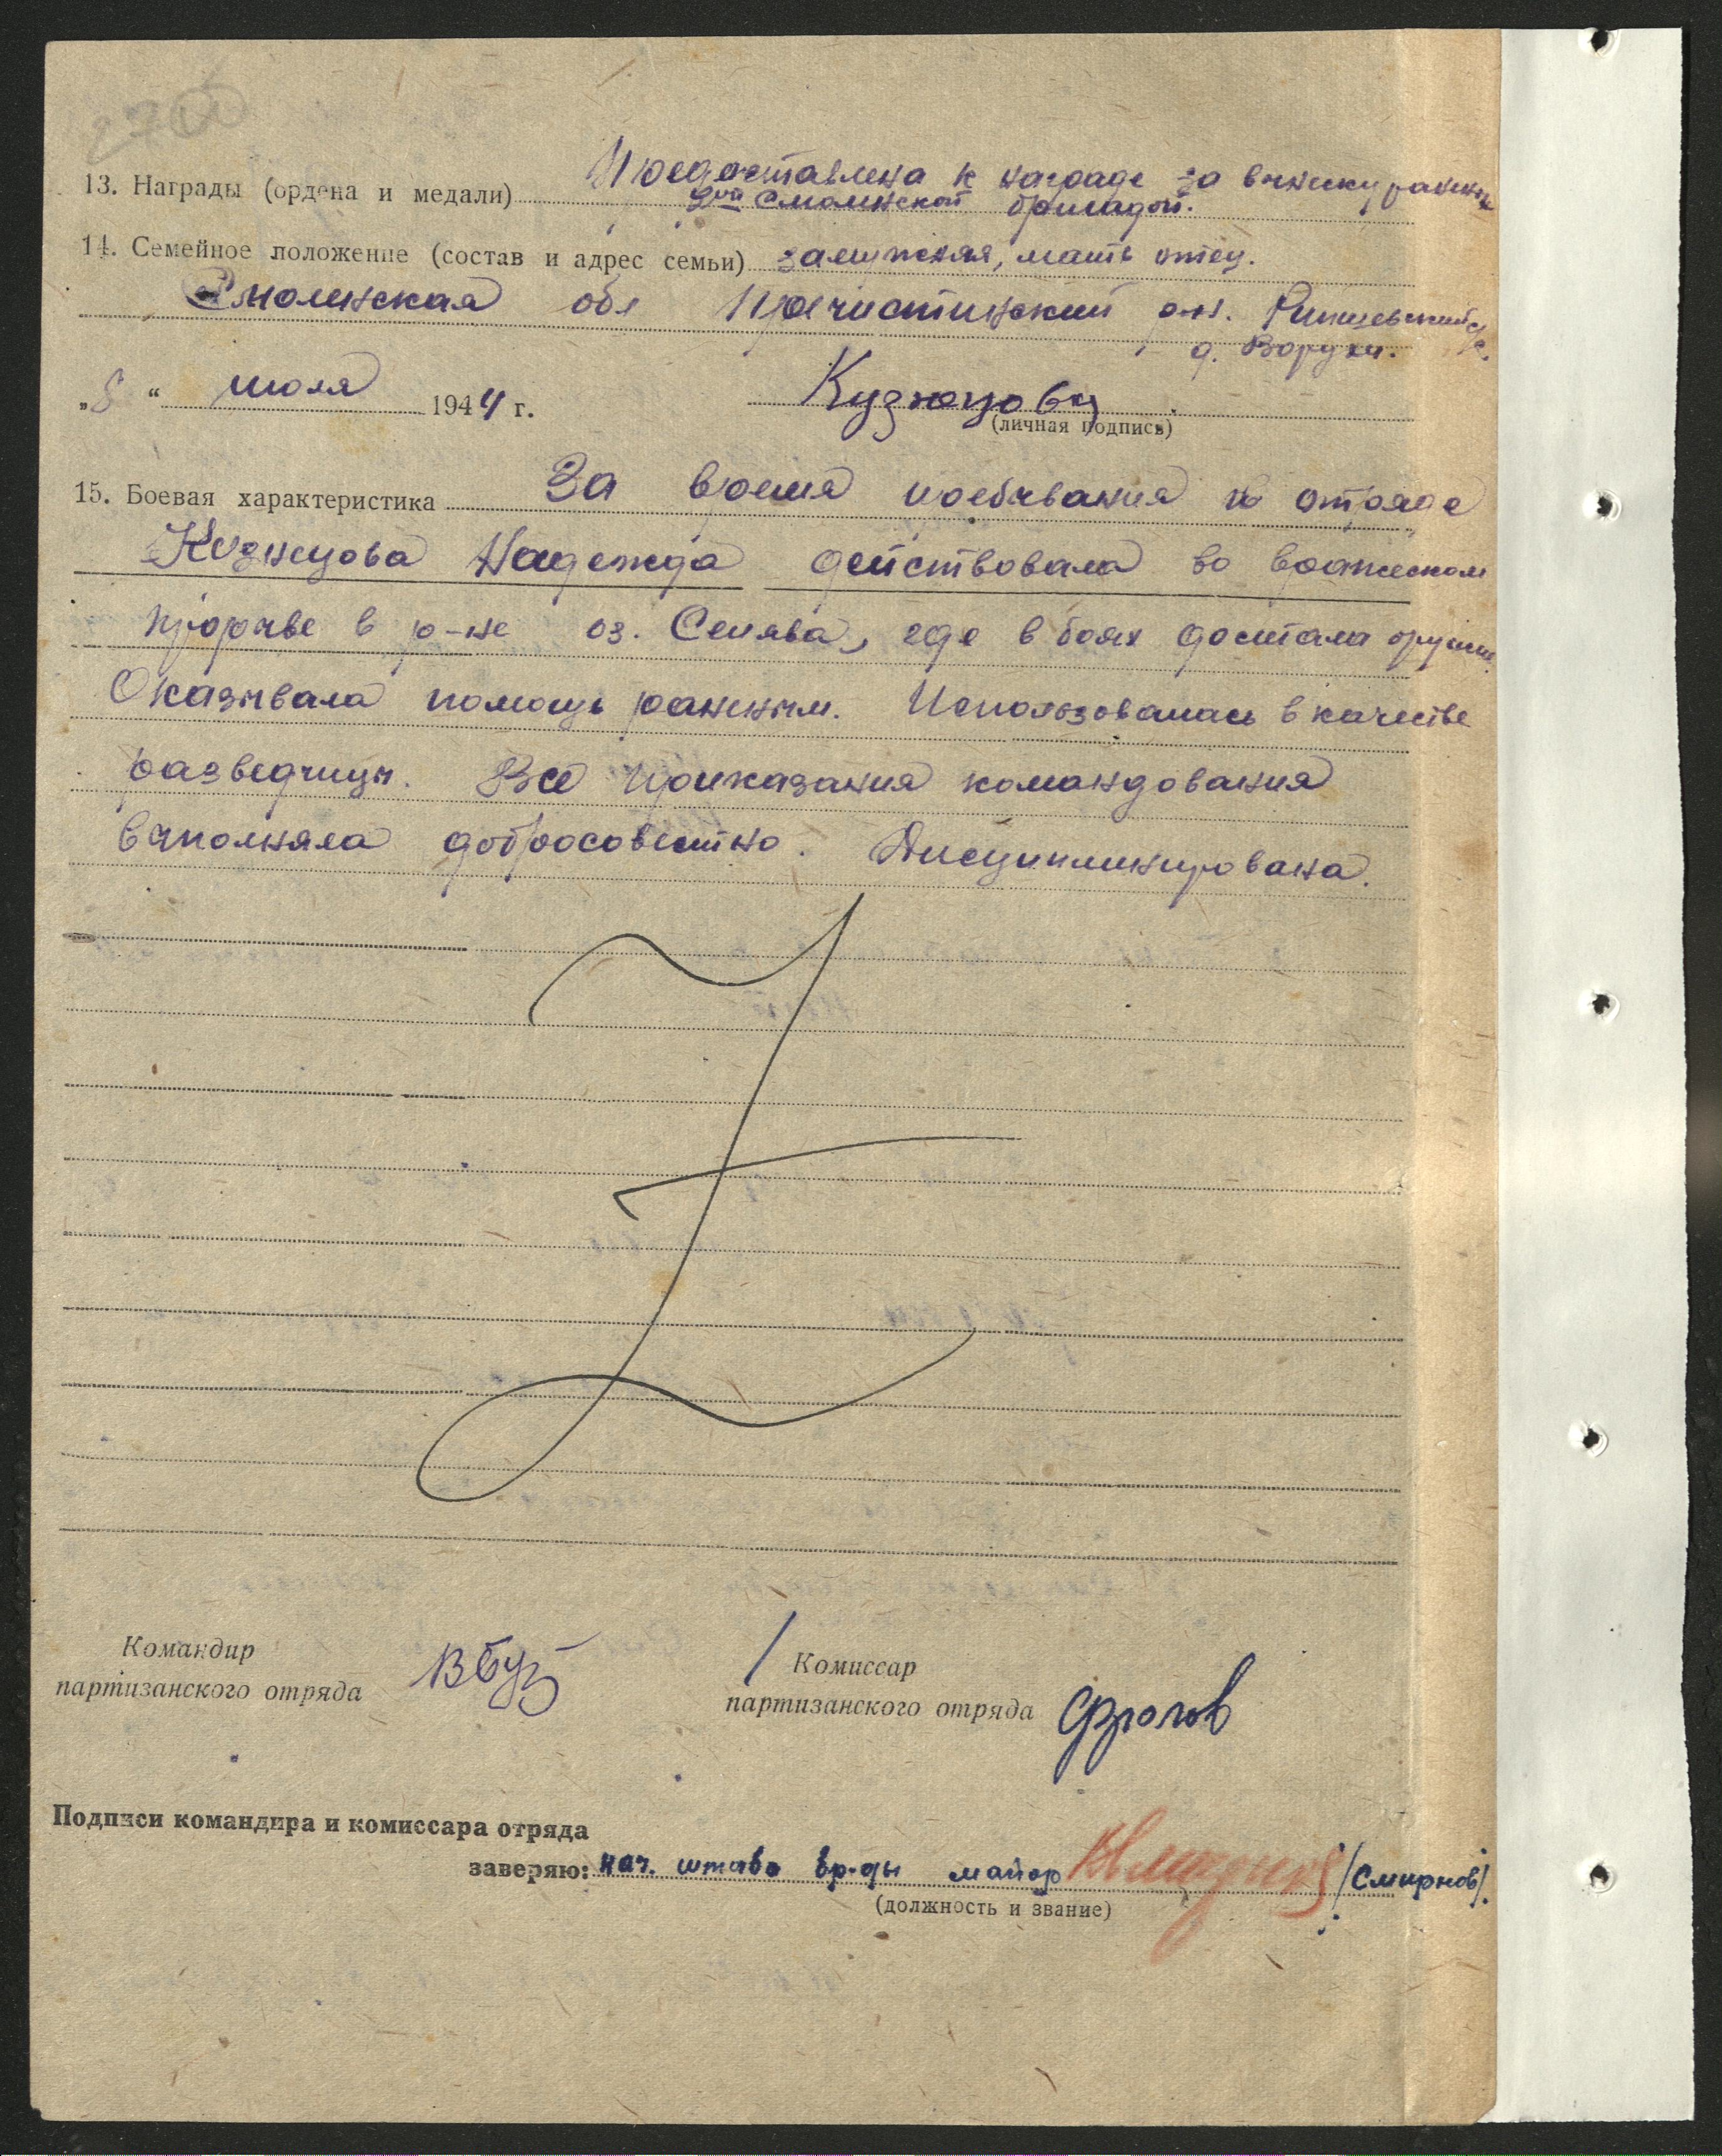 13. Награды (ордена и медали) Предоставлена к награде за вынеску раненых
2ой Смоленской бригадой.
14. Семейное положение (состав и адрес семьи) замужняя, мать отец.
Смоленская обл Пречистинский р-н.
д. Ворухи.
„8“ июля 1944 г. Кузнецова
(личная подпись)
15. Боевая характеристика За время пребывания в отряде
Кузнецова Надежда действовала во вражеском
прорыве в р-не оз. Сенява, где в боях достала оружие.
Оказывала помощь раненым. Использовалась в качестве
разведчицы. Все приказания командования
выполняла добросовестно. Дисциплинирована.
Командир
партизанского отряда
Комиссар
партизанского отряда Фролов
Подписи командира и комиссара отряда
заверяю: нач. штаба бр-ды майор /Смирнов/.
(должность и звание)